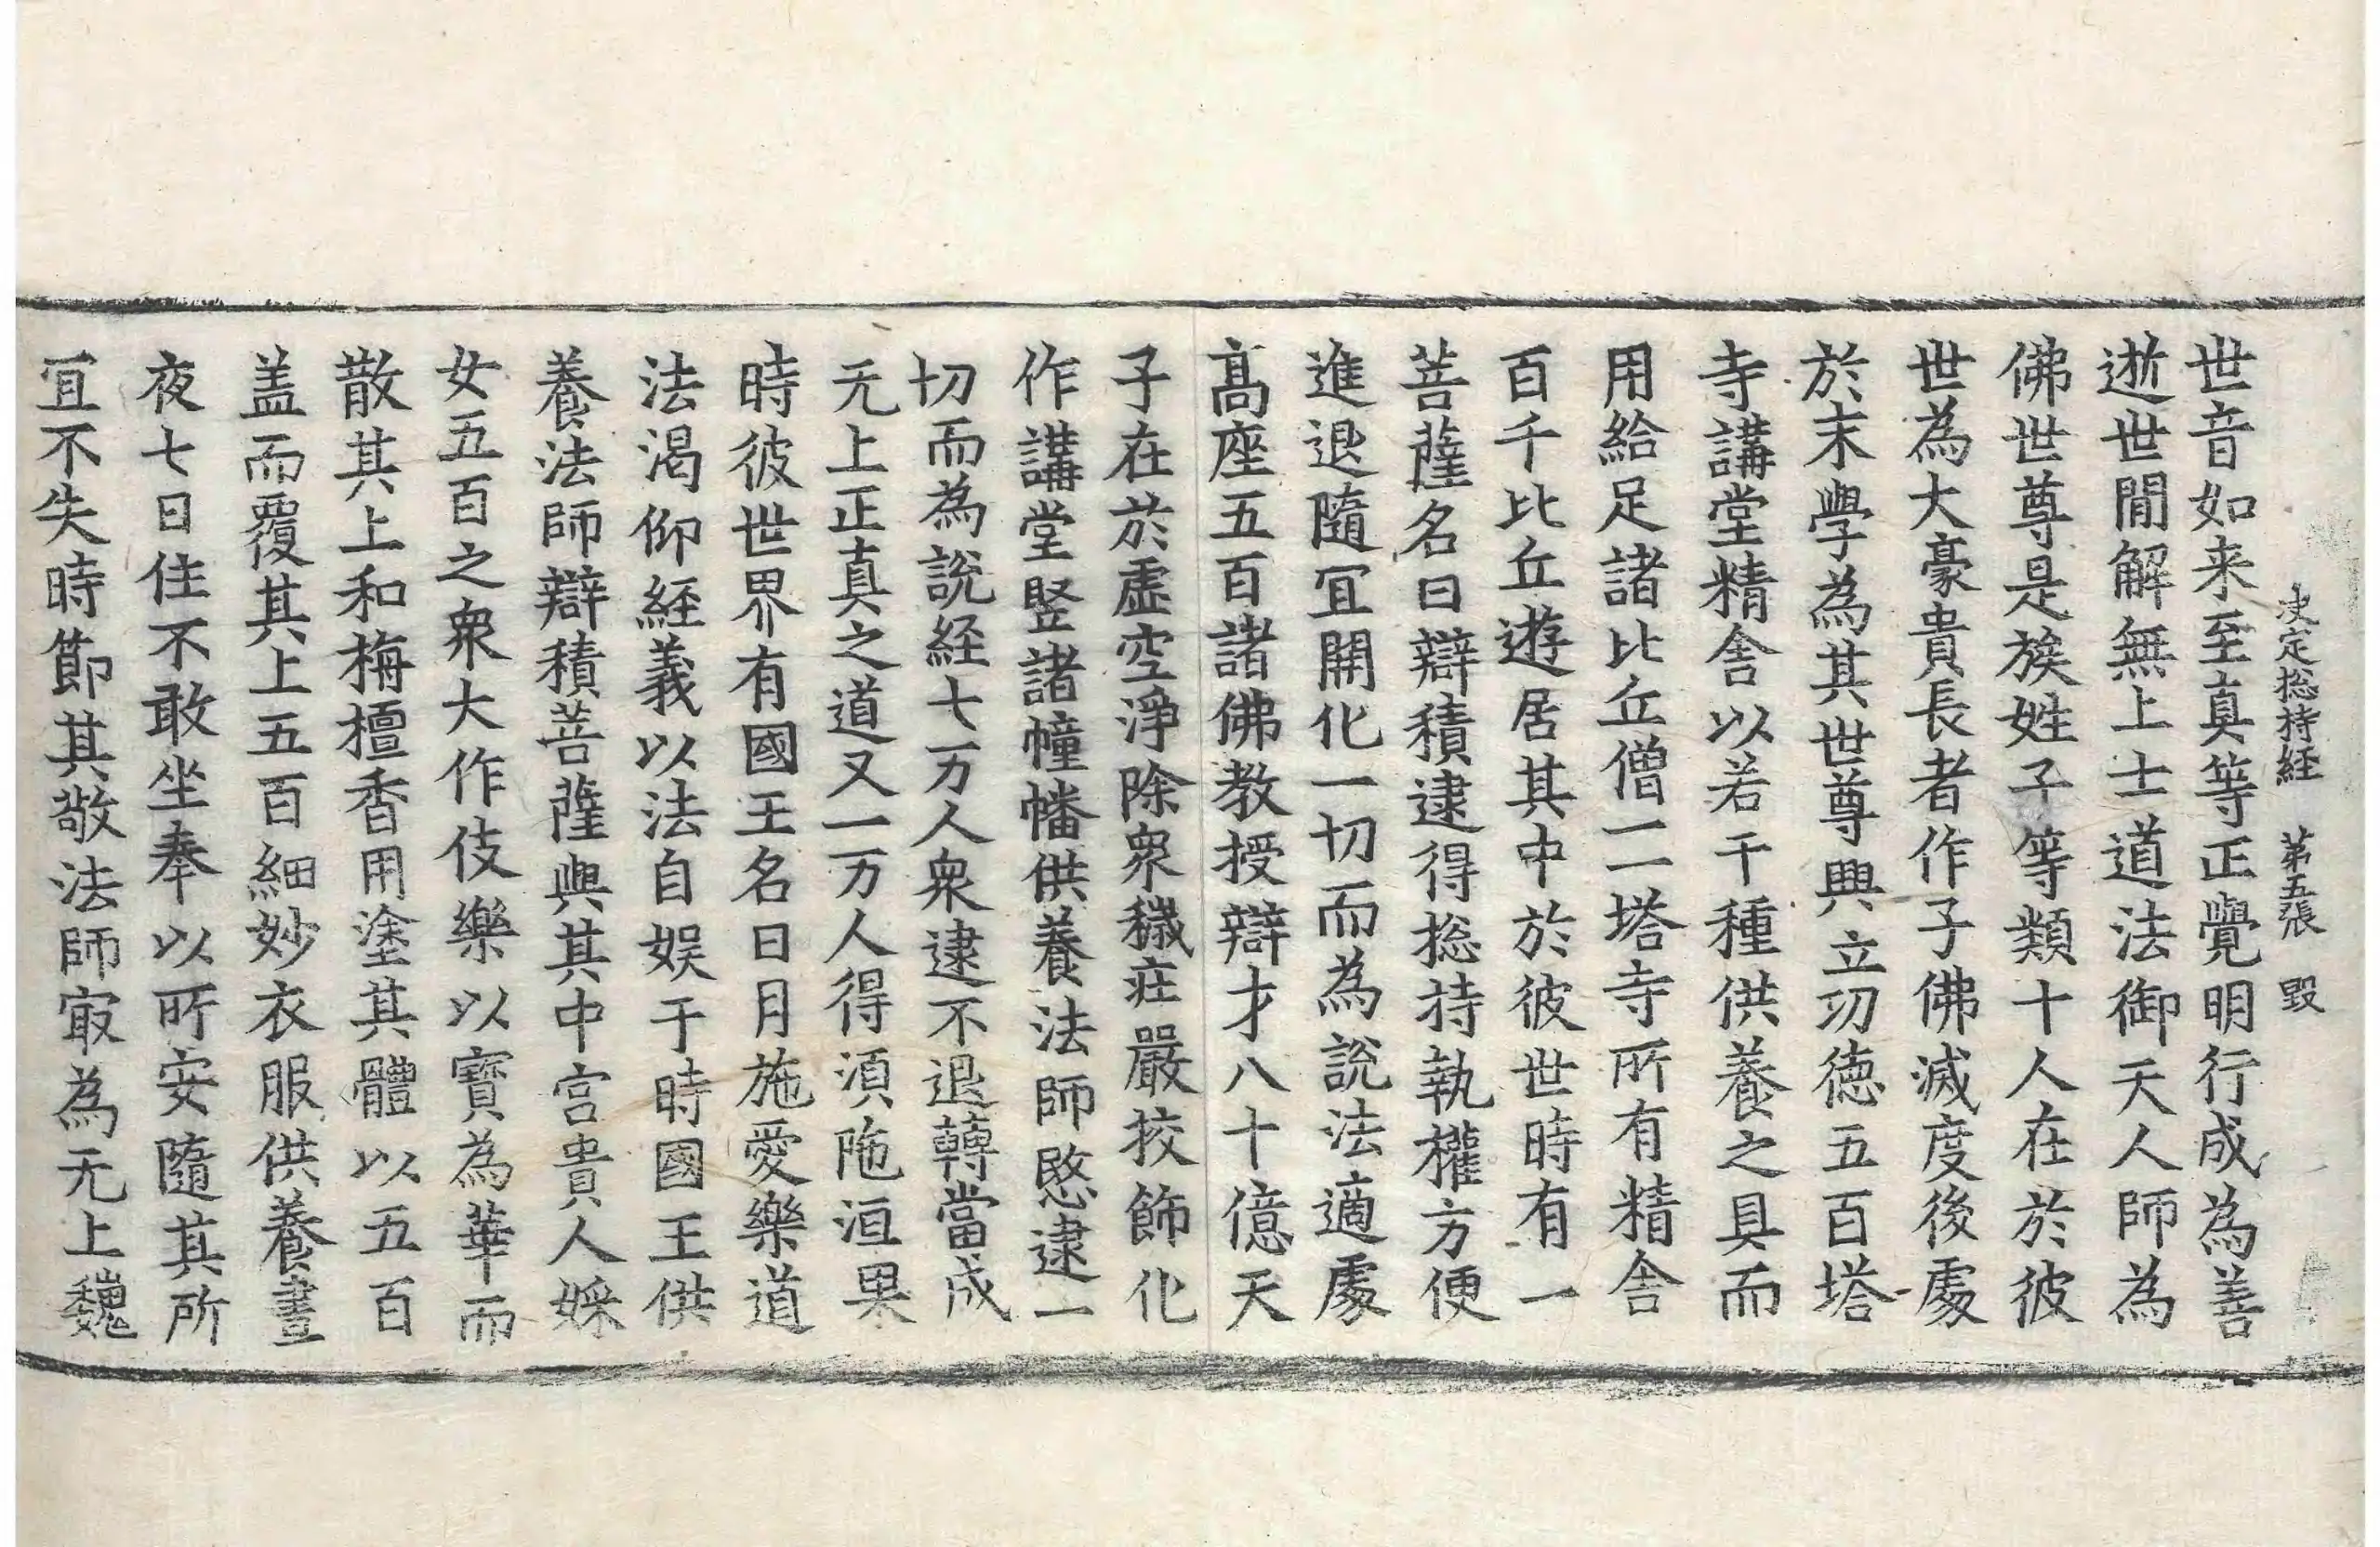 决定捴持経 苐五張 毀
世音如来至真等正覺明行成為善
逝世閒解無上士道法御天人師為
佛世尊是族姓子等類十人在於彼
世為大豪貴長者作子佛滅度後處
於末學為其世尊興立功徳五百塔
寺講堂精舎以若干種供養之具而
用給足諸比丘僧一一塔寺所有精舎
百千比丘遊居其中於彼世時有一
菩薩名曰辯積逮得捴持執權方便
進退隨冝開化一切而為說法適處
髙座五百諸佛教授辯才八十億天
子在於虚空淨除衆穢莊嚴挍飾化
作講堂竪諸幢幡供養法師愍逮一
切而為說経七万人衆逮不退轉當成
无上正真之道又一万人得湏陁洹果
時彼世界有國王名曰月施愛樂道
法渇仰経義以法自娱于時國王供
養法師辯積菩薩與其中宫貴人婇
女五百之衆大作伎樂以寳為華而
散其上和栴檀香用塗其體以五百
盖而覆其上五百細妙衣服供養晝
夜七日住不敢坐奉以所安隨其所
冝不失時節其敬法師㝡為无上巍